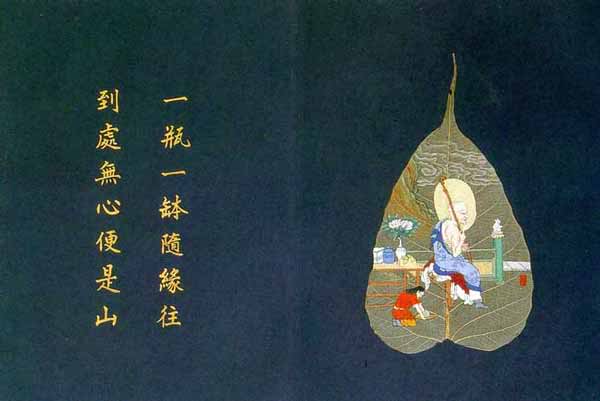 一瓶一缽隨緣往
到處無心便是山